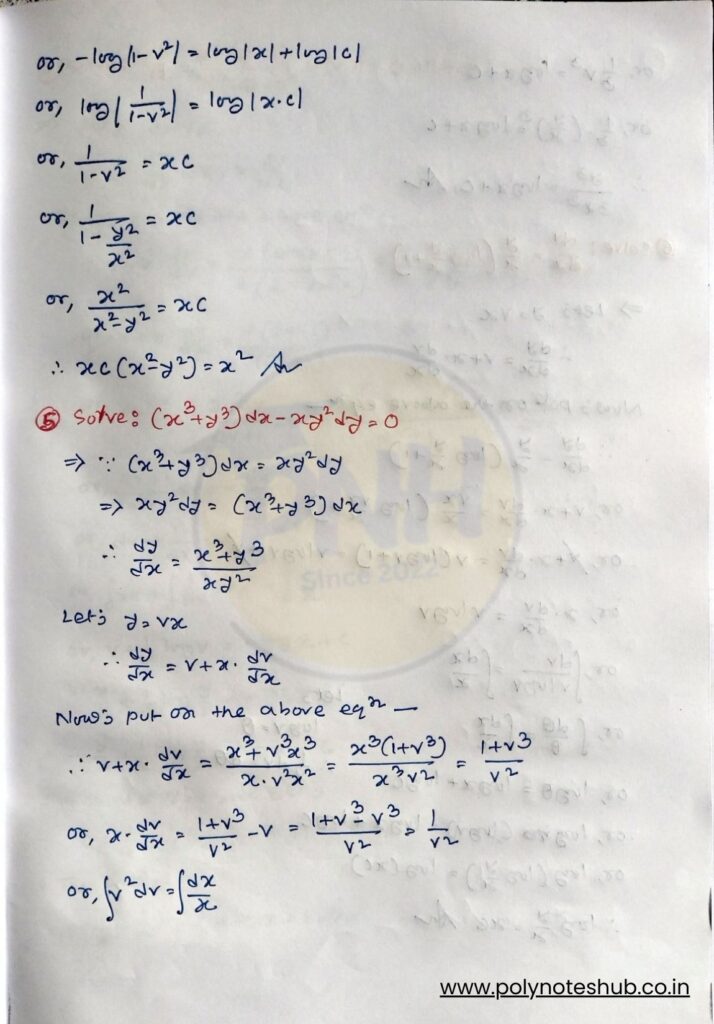 or, -log|1-v²| = log|x|+log|c|
or, log|1/(1-v²)| = log|x·c|
or, 1/(1-v²) = xc
or, 1/(1-y²/x²) = xc
or, x²/(x²-y²) = xc
∴ xc(x²-y²) = x² Ar
⑤ Solve: (x³+y³)dx-xy²dy=0
⇒ ∵ (x³+y³)dx = xy²dy
⇒ xy²dy = (x³+y³)dx
∴ dy/dx = (x³+y³)/(xy²)
Let's y=vx
∴ dy/dx = v+x·dv/dx
Now's put on the above eqⁿ —
∴ v+x·dv/dx = (x³+v³x³)/(x·v²x²) = x³(1+v³)/(x³v²) = (1+v³)/v²
or, x·dv/dx = (1+v³)/v² -v = (1+v³-v³)/v² = 1/v²
or, ∫v²dv = ∫dx/x
PNH
Since 2022
www.polynoteshub.co.in